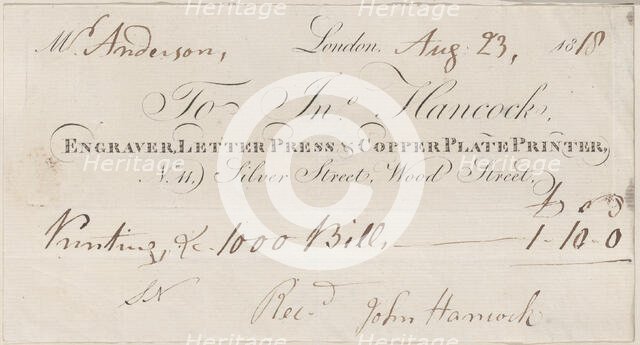 Mr. Anderson, London, Aug: 23, 1818
To Jno. Hancock,
ENGRAVER, LETTER PRESS & COPPER PLATE PRINTER,
N. 11, Silver Street, Wood Street.
Printing, &c. 1000 Bills 1-10-0
Rec.d John Hancock
Heritage
Heritage
Heritage
Heritage
Heritage
Heritage